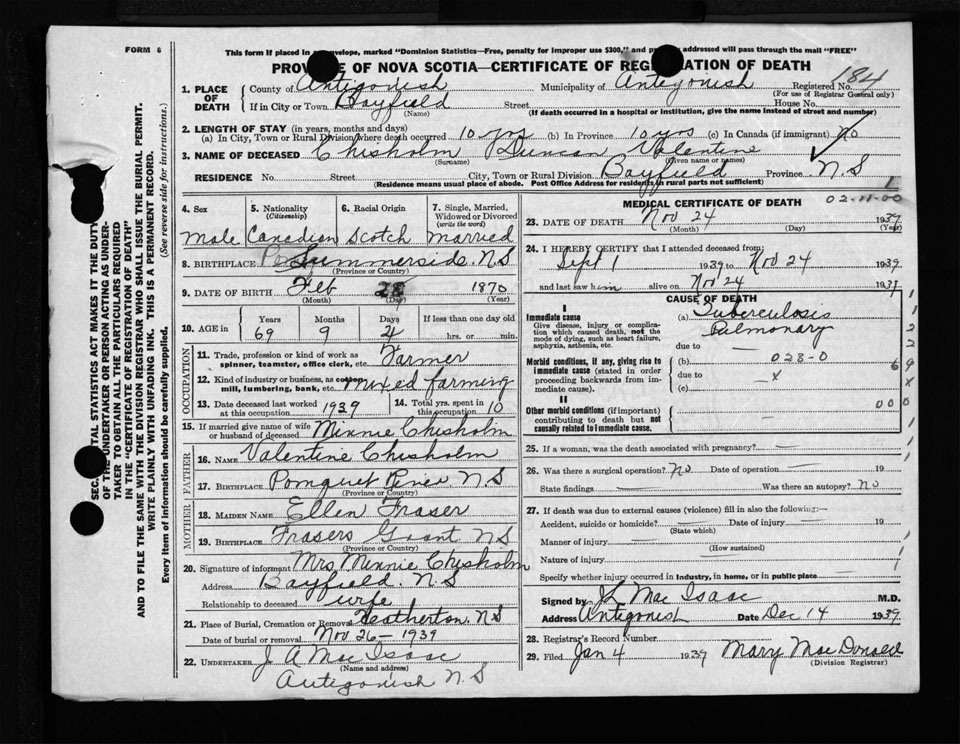 FORM 6
This form if placed in envelope, marked "Dominion Statistics—Free, penalty for improper use $300," and addressed will pass through the mail "FREE"
PROVINCE OF NOVA SCOTIA—CERTIFICATE OF REGISTRATION OF DEATH
184
1. PLACE OF DEATH County of Antigonish Municipality of Antigonish Registered No.
(For use of Registrar General only)
If in City or Town Bayfield Street House No.
(Name) (If death occurred in a hospital or institution, give the name instead of street and number)
2. LENGTH OF STAY (in years, months and days)
(a) In City, Town or Rural Division where death occurred 10 yrs (b) In Province 10 yrs (c) In Canada (if immigrant) No
3. NAME OF DECEASED Chisholm Duncan Valentine
(Surname) (Given name or names)
RESIDENCE No. Street City, Town or Rural Division Bayfield Province N.S
(Residence means usual place of abode. Post Office Address for residents in rural parts not sufficient)
1
02-11-00
4. Sex 5. Nationality (Citizenship) 6. Racial Origin 7. Single, Married, Widowed or Divorced (write the word)
Male Canadian Scotch Married
8. BIRTHPLACE Summerside, N.S
(Province or Country)
9. DATE OF BIRTH Feb 28 1870
(Month) (Day) (Year)
10. AGE in Years Months Days If less than one day old
69 9 hrs. or min.
OCCUPATION
11. Trade, profession or kind of work as spinner, teamster, office clerk, etc. Farmer
12. Kind of industry or business, as cotton mill, lumbering, bank, etc. Mixed farming
13. Date deceased last worked at this occupation 1939 14. Total yrs. spent in this occupation 10
15. If married give name of wife or husband of deceased Minnie Chisholm
FATHER
16. NAME Valentine Chisholm
17. BIRTHPLACE Pomquet River N S
(Province or Country)
MOTHER
18. MAIDEN NAME Ellen Fraser
19. BIRTHPLACE Frasers Grant N S
(Province or Country)
20. Signature of informant Mrs. Minnie Chisholm
Address Bayfield. N.S
Relationship to deceased wife
21. Place of Burial, Cremation or Removal Heatherton, N.S
Date of burial or removal Nov 26 - 1939
22. UNDERTAKER J. A Mac Isaac
(Name and address)
Antigonish N.S
MEDICAL CERTIFICATE OF DEATH
23. DATE OF DEATH Nov 24 1939
(Month) (Day) (Year)
24. I HEREBY CERTIFY that I attended deceased from:
Sept 1 1939 to Nov 24 1939
and last saw him alive on Nov 24 1939
CAUSE OF DEATH
I
Immediate cause (a) Tuberculosis
Give disease, injury or complication which caused death, not the mode of dying, such as heart failure, asphyxia, asthenia, etc.
Pulmonary
due to —
Morbid conditions, if any, giving rise to immediate cause (stated in order proceeding backwards from immediate cause).
(b) 028-0
due to —x
(c)
II
Other morbid conditions (if important) contributing to death but not causally related to immediate cause.
000
25. If a woman, was the death associated with pregnancy? —
26. Was there a surgical operation? No Date of operation — 19
State findings — Was there an autopsy? No
27. If death was due to external causes (violence) fill in also the following:—
Accident, suicide or homicide? — Date of injury — 19
(State which)
Manner of injury —
(How sustained)
Nature of injury —
Specify whether injury occurred in industry, in home, or in public place —
Signed by Mac Isaac M.D.
Address Antigonish Date Dec 14 1939
28. Registrar's Record Number
29. Filed Jan 4 1939 Mary MacDonald
(Division Registrar)
TAL STATISTICS ACT MAKES IT THE DUTY
OF THE UNDERTAKER OR PERSON ACTING AS UNDERTAKER TO OBTAIN ALL THE PARTICULARS REQUIRED
IN THE "CERTIFICATE OF REGISTRATION OF DEATH"
AND TO FILE THE SAME WITH THE DIVISION REGISTRAR WHO SHALL ISSUE THE BURIAL PERMIT.
WRITE PLAINLY WITH UNFADING INK. THIS IS A PERMANENT RECORD.
Every item of information should be carefully supplied. (See reverse side for instructions.)